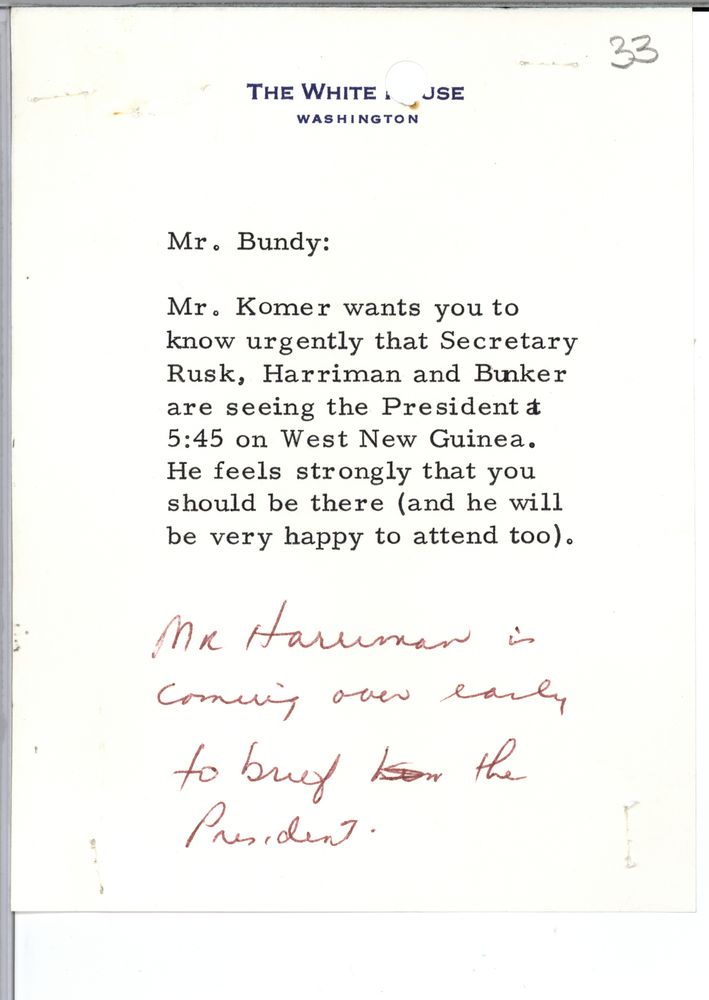 33
THE WHITE HOUSE
WASHINGTON
Mr. Bundy:
Mr. Komer wants you to
know urgently that Secretary
Rusk, Harriman and Bunker
are seeing the President at
5:45 on West New Guinea.
He feels strongly that you
should be there (and he will
be very happy to attend too).
Mr Harriman is
coming over early
to brief the
President.